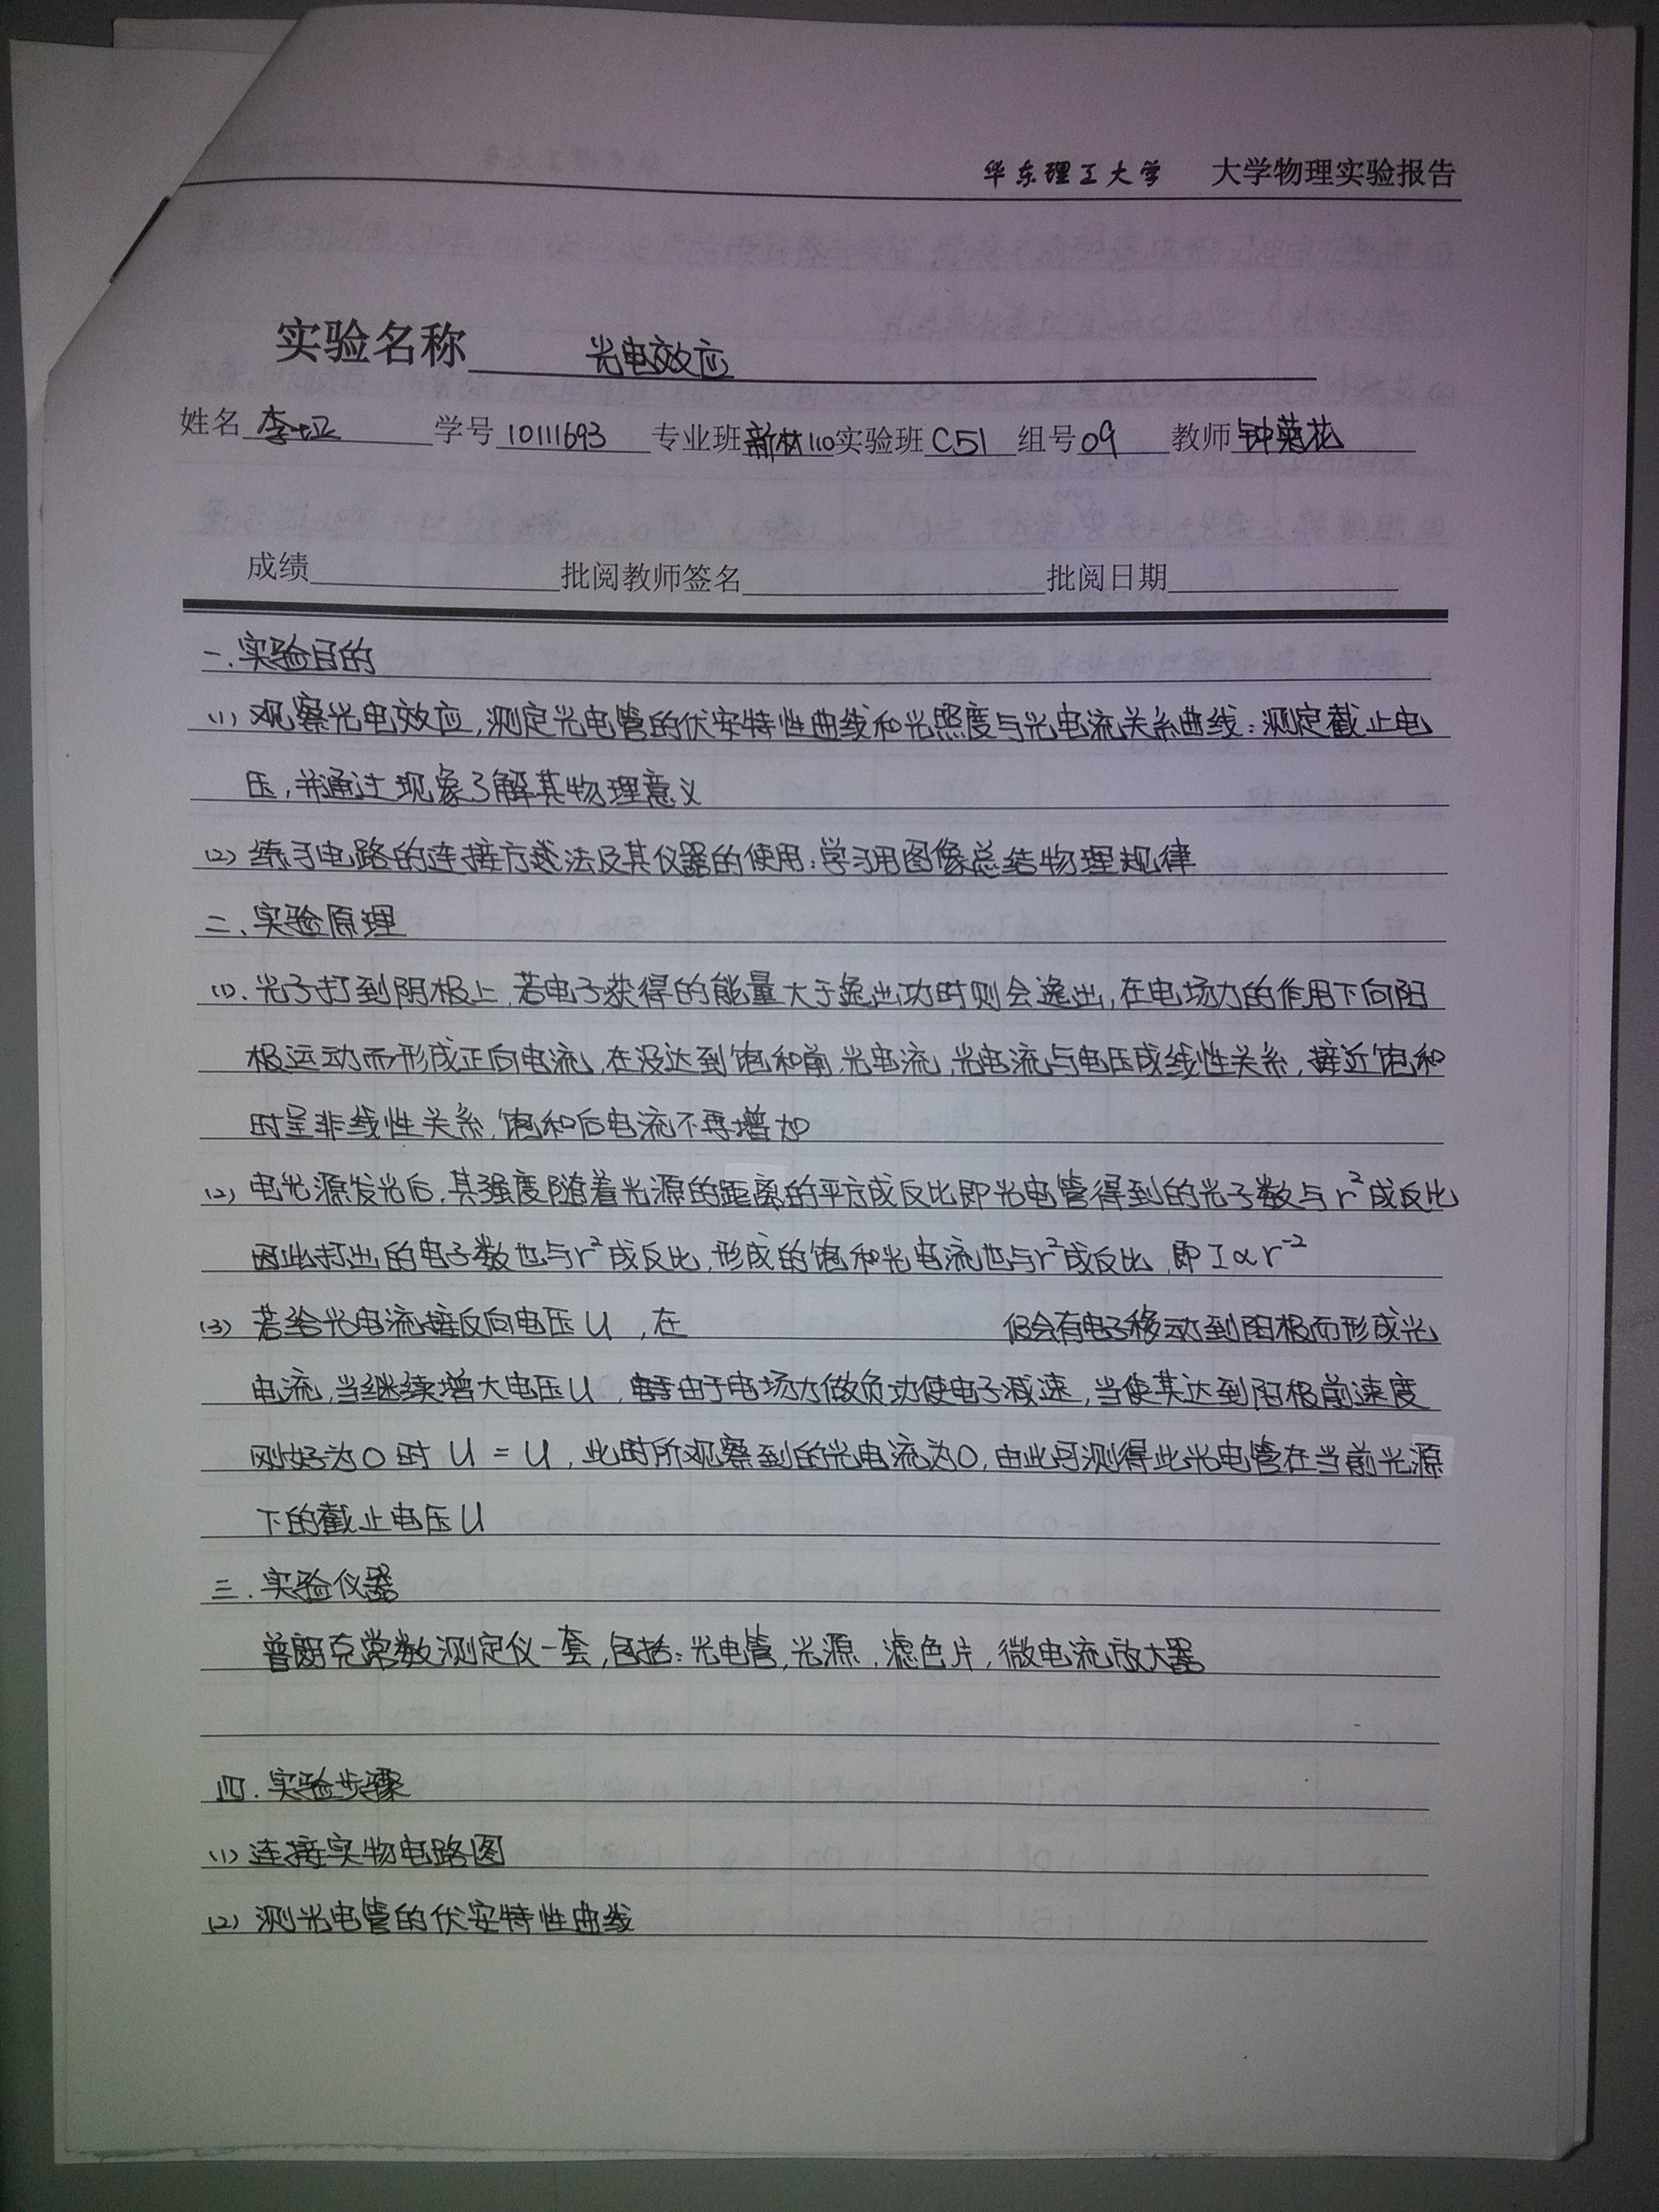 华东理工大学 大学物理实验报告
实验名称 光电效应
姓名 李垭 学号 10111693 专业班 新材110 实验班 C51 组号 09 教师 钟菊花
成绩 批阅教师签名 批阅日期
一.实验目的
(1) 观察光电效应,测定光电管的伏安特性曲线和光照度与光电流关系曲线;测定截止电
压,并通过现象了解其物理意义
(2) 练习电路的连接方法及其仪器的使用;学习用图像总结物理规律
二、实验原理
(1).光子打到阴极上,若电子获得的能量大于逸出功时则会逸出,在电场力的作用下向阳
极运动而形成正向电流,在没达到饱和前,光电流,光电流与电压成线性关系,接近饱和
时呈非线性关系,饱和后电流不再增加
(2) 电光源发光后,其强度随着光源的距离的平方成反比即光电管得到的光子数与r²成反比
因此打出的电子数也与r²成反比,形成的饱和光电流也与r²成反比,即I∝r⁻²
(3) 若给光电流接反向电压U ,在 仍会有电子移动到阳极而形成光
电流,当继续增大电压U ,由于电场力做负功使电子减速,当使其达到阳极前速度
刚好为0时 U = U ,此时所观察到的光电流为0,由此可测得此光电管在当前光源
下的截止电压U
三.实验仪器
普朗克常数测定仪一套,包括:光电管,光源,滤色片,微电流放大器
四.实验步骤
(1) 连接实物电路图
(2) 测光电管的伏安特性曲线